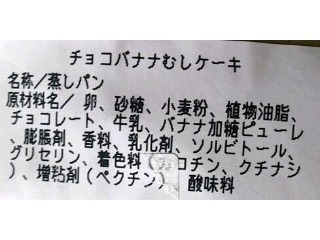 チョコバナナむしケーキ
名称／蒸しパン
原材料名／ 卵、砂糖、小麦粉、植物油脂、
チョコレート、牛乳、バナナ加糖ピューレ
、膨脹剤、香料、乳化剤、ソルビトール、
グリセリン、着色料 コチン、クチナシ
）、増粘剤（ペクチン） 酸味料